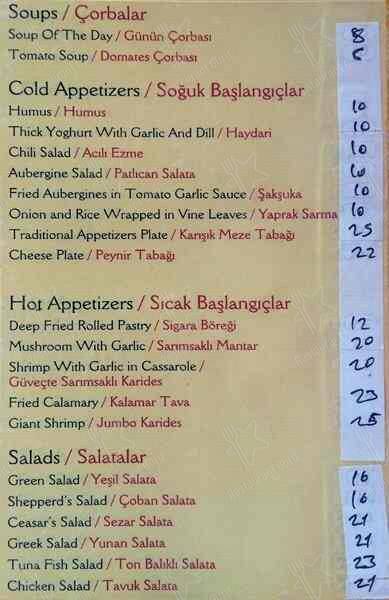 Soups / Çorbalar
Soup Of The Day / Günün Çorbası 8
Tomato Soup / Domates Çorbası 6
Cold Appetizers / Soğuk Başlangıçlar
Humus / Humus 10
Thick Yoghurt With Garlic And Dill / Haydari 10
Chili Salad / Acılı Ezme 10
Aubergine Salad / Patlıcan Salata 10
Fried Aubergines in Tomato Garlic Sauce / Şakşuka 10
Onion and Rice Wrapped in Vine Leaves / Yaprak Sarma 10
Traditional Appetizers Plate / Karışık Meze Tabağı 25
Cheese Plate / Peynir Tabağı 22
Hot Appetizers / Sıcak Başlangıçlar
Deep Fried Rolled Pastry / Sigara Böreği 12
Mushroom With Garlic / Sarımsaklı Mantar 20
Shrimp With Garlic in Cassarole / 20
Güveçte Sarımsaklı Karides
Fried Calamary / Kalamar Tava 23
Giant Shrimp / Jumbo Karides 25
Salads / Salatalar
Green Salad / Yeşil Salata 16
Shepperd's Salad / Çoban Salata 16
Ceasar's Salad / Sezar Salata 21
Greek Salad / Yunan Salata 21
Tuna Fish Salad / Ton Balıklı Salata 23
Chicken Salad / Tavuk Salata 21